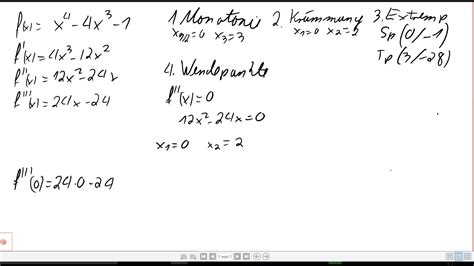 f(x) = x⁴ - 4x³ - 1
f'(x) = 4x³ - 12x²
f''(x) = 12x² - 24x
f'''(x) = 24x - 24
f'''(0) = 24·0 - 24
1. Monotonie
x₁/₂=0 x₃=3
2. Krümmung
x₁=0 x₂=2
3. Extremp
Sp (0/-1)
Tp (3/-28)
4. Wendepunkte
f''(x) = 0
12x² - 24x = 0
x₁=0 x₂ = 2